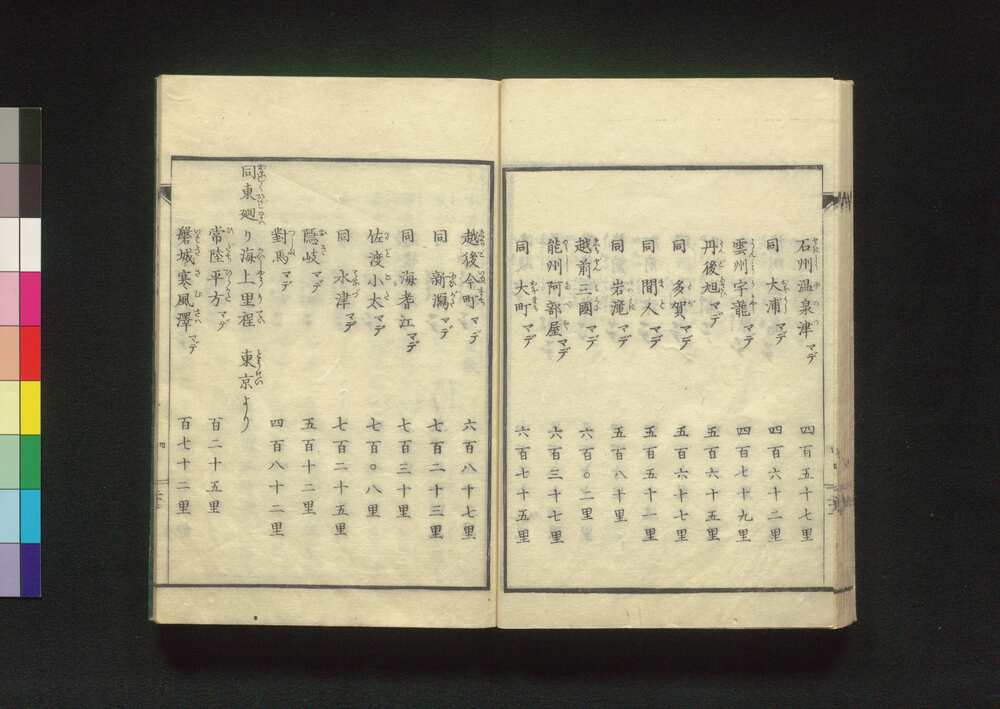 石州温泉津マデ 四百五十七里
同 大浦マデ 四百六十二里
雲州宇龍マデ 四百七十九里
丹後旭マデ 五百六十五里
同 多賀マデ 五百六十七里
同 間人マデ 五百五十一里
同 岩滝マデ 五百八十里
越前三國マデ 六百〇二里
能州阿部屋マデ 六百三十七里
同 大町マデ 六百七十五里
越後今町マデ 六百八十七里
同 新潟マデ 七百二十三里
同 海老江マデ 七百三十里
佐渡小太マデ 七百〇八里
同 水津マデ 七百二十五里
隠岐マデ 五百十二里
對馬マデ 四百八十二里
同東廻り海上里程 東京より
常陸平方マデ 百二十五里
磐城寒風澤マデ 百七十二里